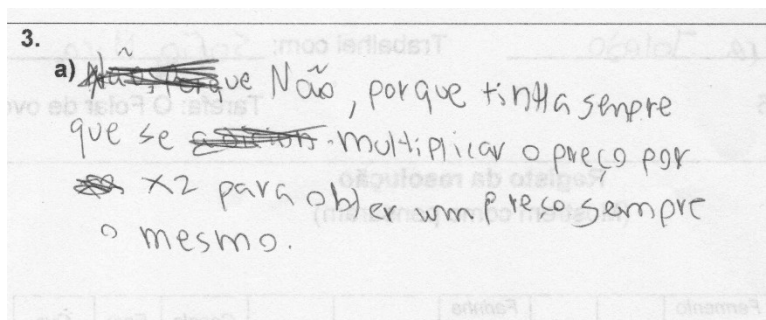 3.
a) Não, porque tinha senpre
que se multiplicar o preço por
x2 para obter um preço sempre
o mesmo.